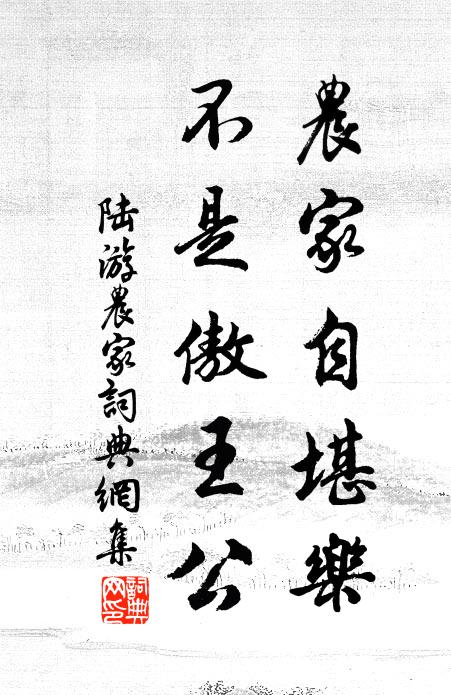 農家自堪樂
不是傲王公
陆游農家詞典網集
詞典网印